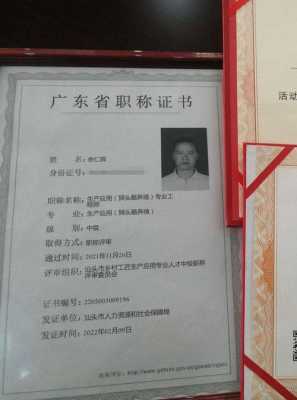 广东省职称证书
姓 名:
身份证号:
职称名称:生产应用(狮头鹅养殖)专业工
程师
专 业:生产应用(狮头鹅养殖)
级 别:中级
取得方式:职称评审
通过时间:2021年11月26日
评审组织:汕头市乡村工匠生产应用专业人才中级职称
评审委员会
证书编号:2203003009196
发证单位:汕头市人力资源和社会保障局
发证时间:2022年02月09日
活动